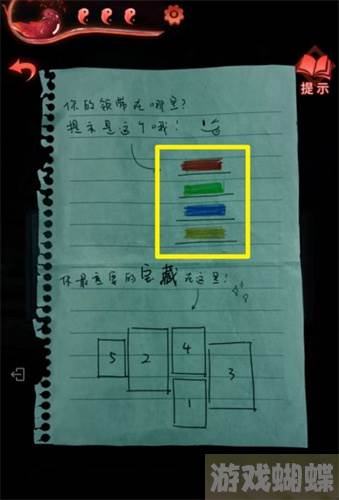 提示
你的领带在哪里?
提示是这个哦!
你最重要的宝藏在这里!
5
2
4
3
1
游戏蝴蝶